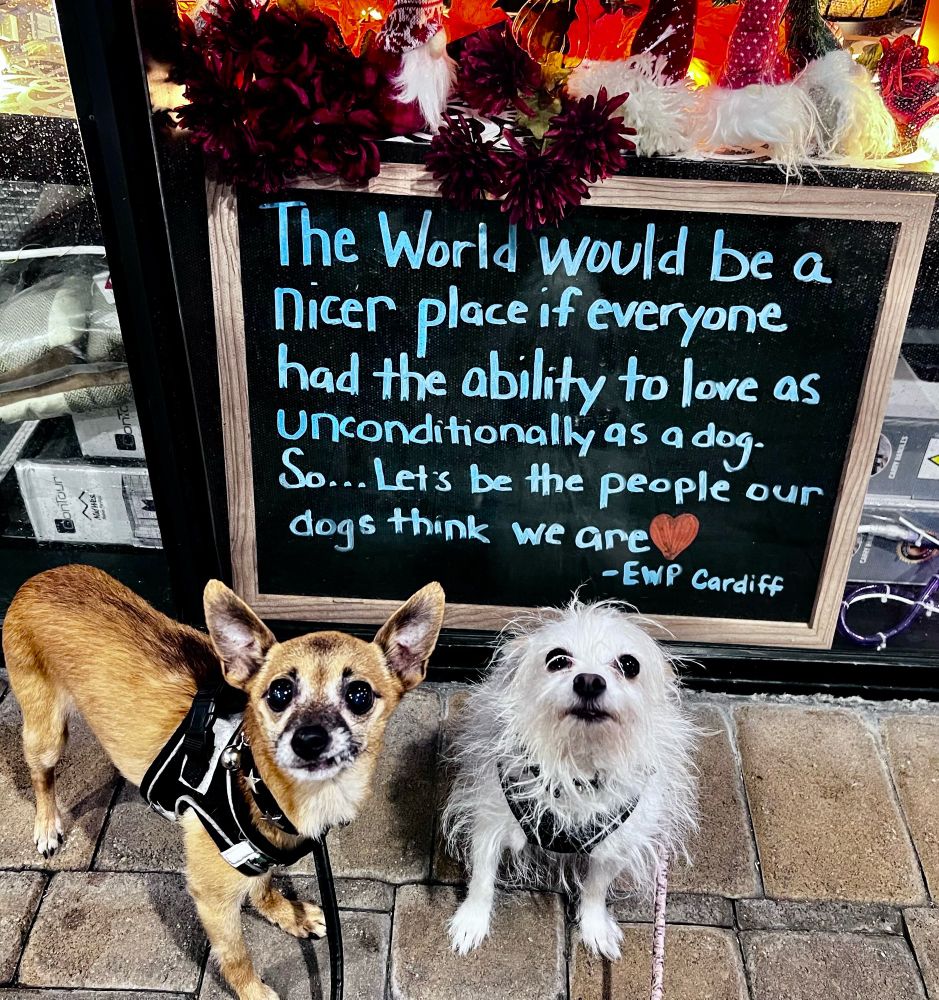 The World would be a
nicer place if everyone
had the ability to love as
unconditionally as a dog.
So... Let's be the people our
dogs think we are
-EWP Cardiff